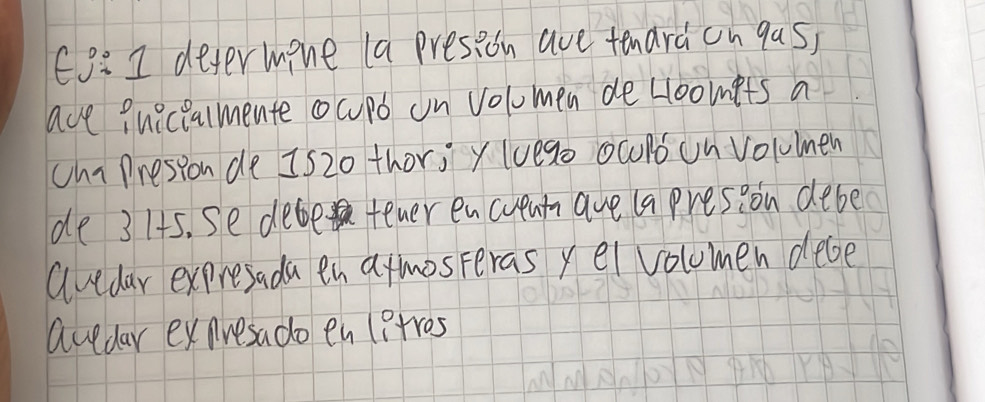 Ej: 1 determine la presión que tendrá un gas,
que inicialmente ocupó un volumen de 400 mlts a
una presion de 1520 thor; y luego ocupó un volumen
de 3 lts. Se debe tener en cuenta que la presión debe
quedar expresada en atmosferas y el volumen debe
quedar expresado en litros